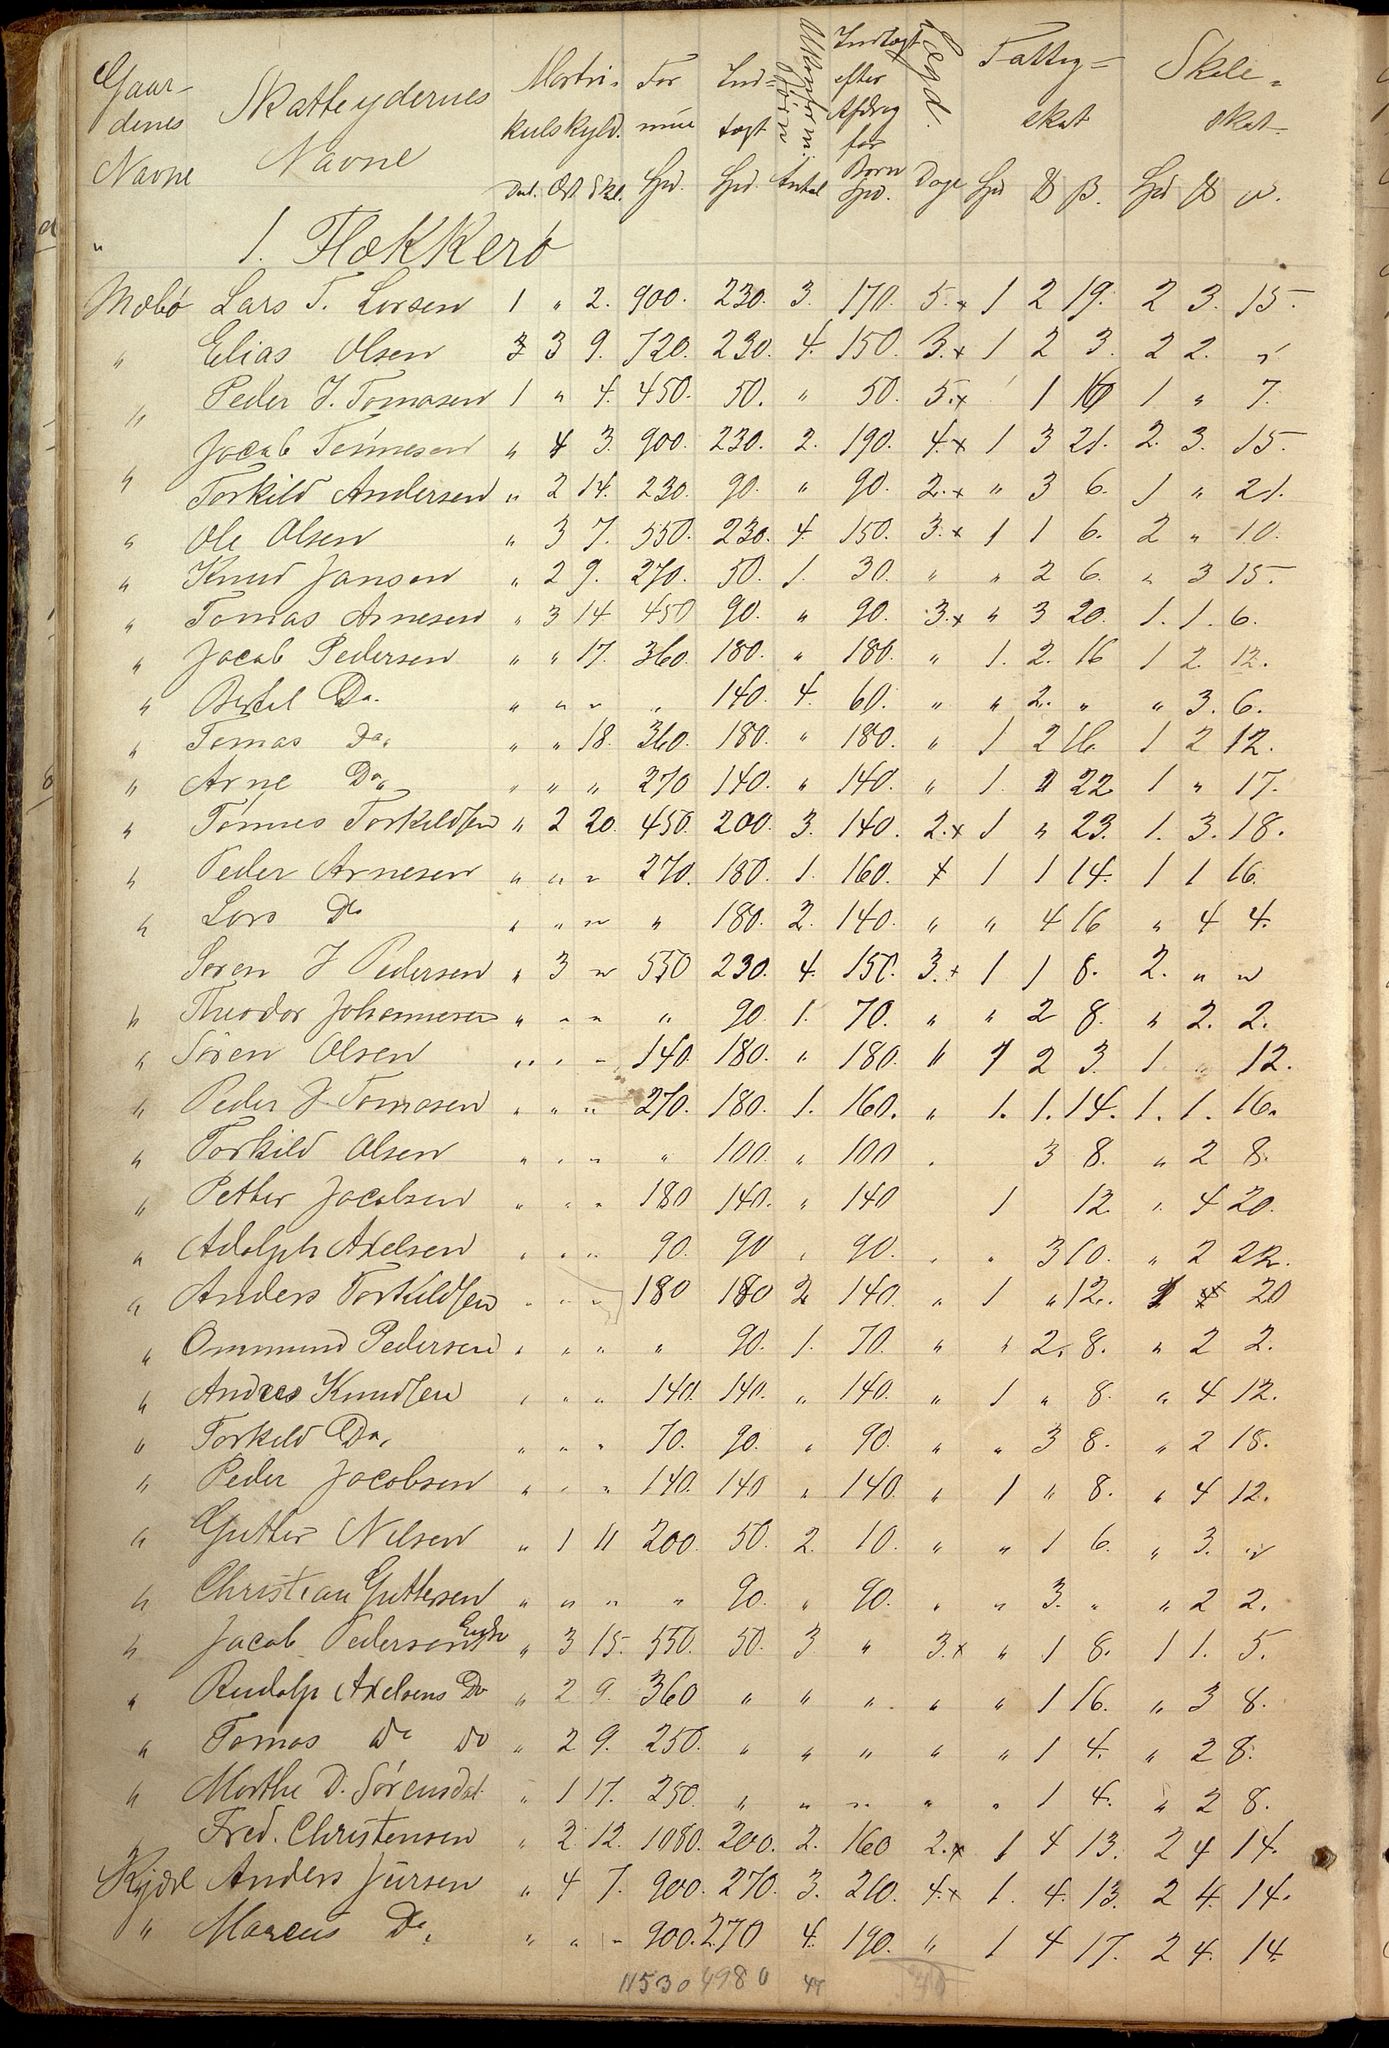 Gaardenes Navne | Skatteydernes Navne | Matrikulskyld. Dal. Ort Skl. | Formüe Spd. | Indtægt Spd. | Børn Antal | Indtægt efter Afdrag for Børn Spd. | Lægd. Dage | Fattigskat Spd ₰ ß. | Skoleskat Spd ₰
" 1. Flækkerö
Mæbö Lars T. Larsen 1 " 2. 900. 230. 3. 170. 5.x 1 2 19. 2 3. 15.
" Elias Olsen 3 9. 720. 230. 4. 150. 3.x 1 2 3. 2 2. "
" Peder J. Tomasen 1 " 4. 450. 50. " 50. 5.x 1 16 1 " 7.
" Jacob Tønnesen " 4 3. 900. 230. 2. 190. 4.x 1 3 21. 2. 3. 15.
" Torkild Andersen " 2 14. 230. 90. " 90. 2.x " 3 6. 1 " 21.
" Ole Olsen " 3 7. 550. 230. 4. 150. 3.x 1 1 6. 2 " 10.
" Knud Jansen " 2 9. 270. 50. 1. 30. " " 2 6. " 3 15.
" Tomas Arnesen " 3 14 450 90. " 90. 3.x " 3 20. 1. 1. 6.
" Jacob Pedersen " " 17. 360. 180. " 180. " 1. 2. 16 1 2. 12.
" Bertel Do. " " " " 140. 4. 60. " " 2. " " 3. 6.
" Tomas Do. " " 18. 360. 180. " 180. " 1 2 16. 1 2 12.
" Arne Do. " " " 270 140. " 140. " 1. " 22 1 " 17.
" Tönnes Torkildsen " 2 20. 450. 200. 3. 140. 2.x 1 " 23. 1. 3. 18.
" Peder Arnesen " " " 270. 180. 1. 160. 1 1 14. 1 1 16.
" Lars Do " " " " 180. 2. 140. " " 4 16 " 4 4.
Sören J Pedersen " 3 " 550 230. 4. 150. 3.x 1 1 8. 2. " "
" Theodor Johannesen " " " " 90. 1. 70. " " 2 8. " 2. 2.
" Sören Olsen " " " 140. 180. " 180. " 1 2 3. 1 " 12.
" Peder J. Tomasen " " " 270. 180. 1. 160. " 1. 1. 14. 1. 1. 16.
" Torkild Olsen " " " " 100. " 100 " 3 8. " 2 8.
" Petter Jacobsen " " " 180 140. " 140 1 12. " 4 20.
" Adolph Axelsen " " " 90. 90 " 90. " " 3 10. " 2 22.
" Anders Torkildsen " " " 180 180 2 140. " 1 " 12. 4 20
" Ommund Pedersen " " " " 90. 1. 70. " " 2. 8. " 2 2.
" Andres Knudsen " " " 140. 140. " 140. " 1 " 8. " 4 12.
" Torkild Do. " " " 70. 90. " 90. " " 3 8. " 2 18.
" Peder Jacobsen " " " 140. 140 " 140. " 1 " 8. " 4 12.
" Gutter Nilsen " 1 11 200. 50. 2. 10. " " 1 6. " 3. "
" Christian Guttersen " " " " 90. " 90. " " 3. " " 2 2.
" Jacob Pedersens Enke " 3 15. 550. 50. 3 " 3.x " 1 8. 1 1. 5.
" Rudolph Axelsens Do " 2 9. 360 " " " " " 1 16. " 3 8.
" Tomas Do Do " 2 9. 250. " " " " " 1 4. " 2 8.
" Marthe D. Sörensdat. " 1 17. 250. " " " " " 1 4. " 2 8.
" Fred. Christensen " 2 12. 1080. 200. 2. 160 2.x 1 4 13. 2 4 14.
Kjære Anders Jürsen " 4 7. 900. 270. 3. 210. 4.x 1. 4. 13. 2 4. 14.
" Marcus Do. " " " 900. 270 4. 190. " 1 4 17. 2 4. 14.
11530 4980 47